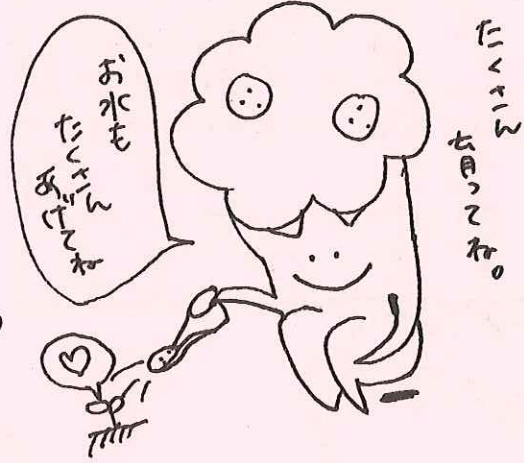 たくさん
育ってね。
お水も
たくさん
あげてね